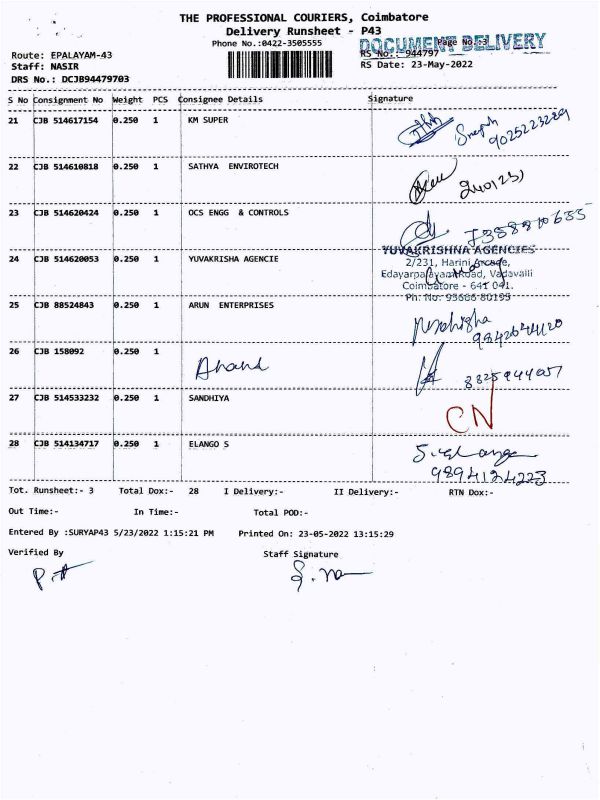 THE PROFESSIONAL COURIERS, Coimbatore
Delivery Runsheet - P43
Phone No.:0422-3505555
DOCUMENT DELIVERY
Page No.:3
Route: EPALAYAM-43
RS No.: 944797
Staff: NASIR
RS Date: 23-May-2022
DRS No.: DCJB94479703
S No Consignment No Weight PCS Consignee Details Signature
21 CJB 514617154 0.250 1 KM SUPER
9025223229
22 CJB 514610818 0.250 1 SATHYA ENVIROTECH
23 CJB 514620424 0.250 1 OCS ENGG & CONTROLS
24 CJB 514620053 0.250 1 YUVAKRISHA AGENCIE
YUVAKRISHNA AGENCIES
2/231, Harini Arcade,
Edayarpalayam Road, Vadavalli
Coimbatore - 641 041.
Ph: No: 95666 80195
25 CJB 88524843 0.250 1 ARUN ENTERPRISES
9842644120
26 CJB 158092 0.250 1
Anand
27 CJB 514533232 0.250 1 SANDHIYA
CN
28 CJB 514134717 0.250 1 ELANGO S
9894124223
Tot. Runsheet:- 3 Total Dox:- 28 I Delivery:- II Delivery:- RTN Dox:-
Out Time:- In Time:- Total POD:-
Entered By :SURYAP43 5/23/2022 1:15:21 PM Printed On: 23-05-2022 13:15:29
Verified By Staff Signature